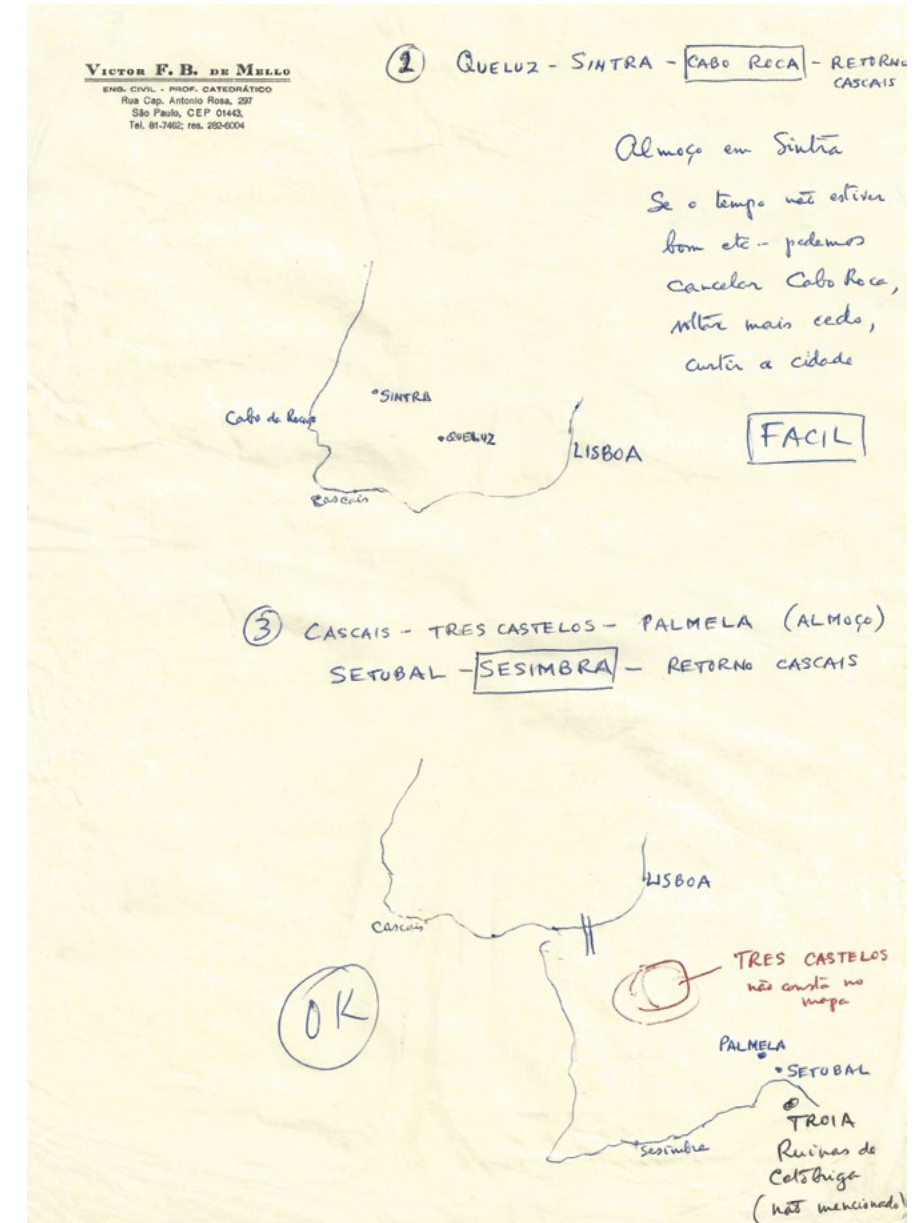 VICTOR F. B. DE MELLO
ENG. CIVIL - PROF. CATEDRÁTICO
Rua Cap. Antonio Rosa, 297
São Paulo, CEP 01443,
Tel. 81-7462; res. 282-6004
2 QUELUZ - SINTRA - CABO ROCA - RETORNO
CASCAIS
Almoço em Sintra
Se o tempo não estiver
bom etc - podemos
cancelar Cabo Roca,
voltar mais cedo,
curtir a cidade
FACIL
SINTRA
Cabo da Roca
QUELUZ
LISBOA
Cascais
3 CASCAIS - TRES CASTELOS - PALMELA (ALMOÇO)
SETUBAL - SESIMBRA - RETORNO CASCAIS
LISBOA
Cascais
TRES CASTELOS
não consta no
mapa
OK
PALMELA
SETUBAL
TROIA
Sesimbra
Ruinas de
Cetóbriga
(não mencionado)